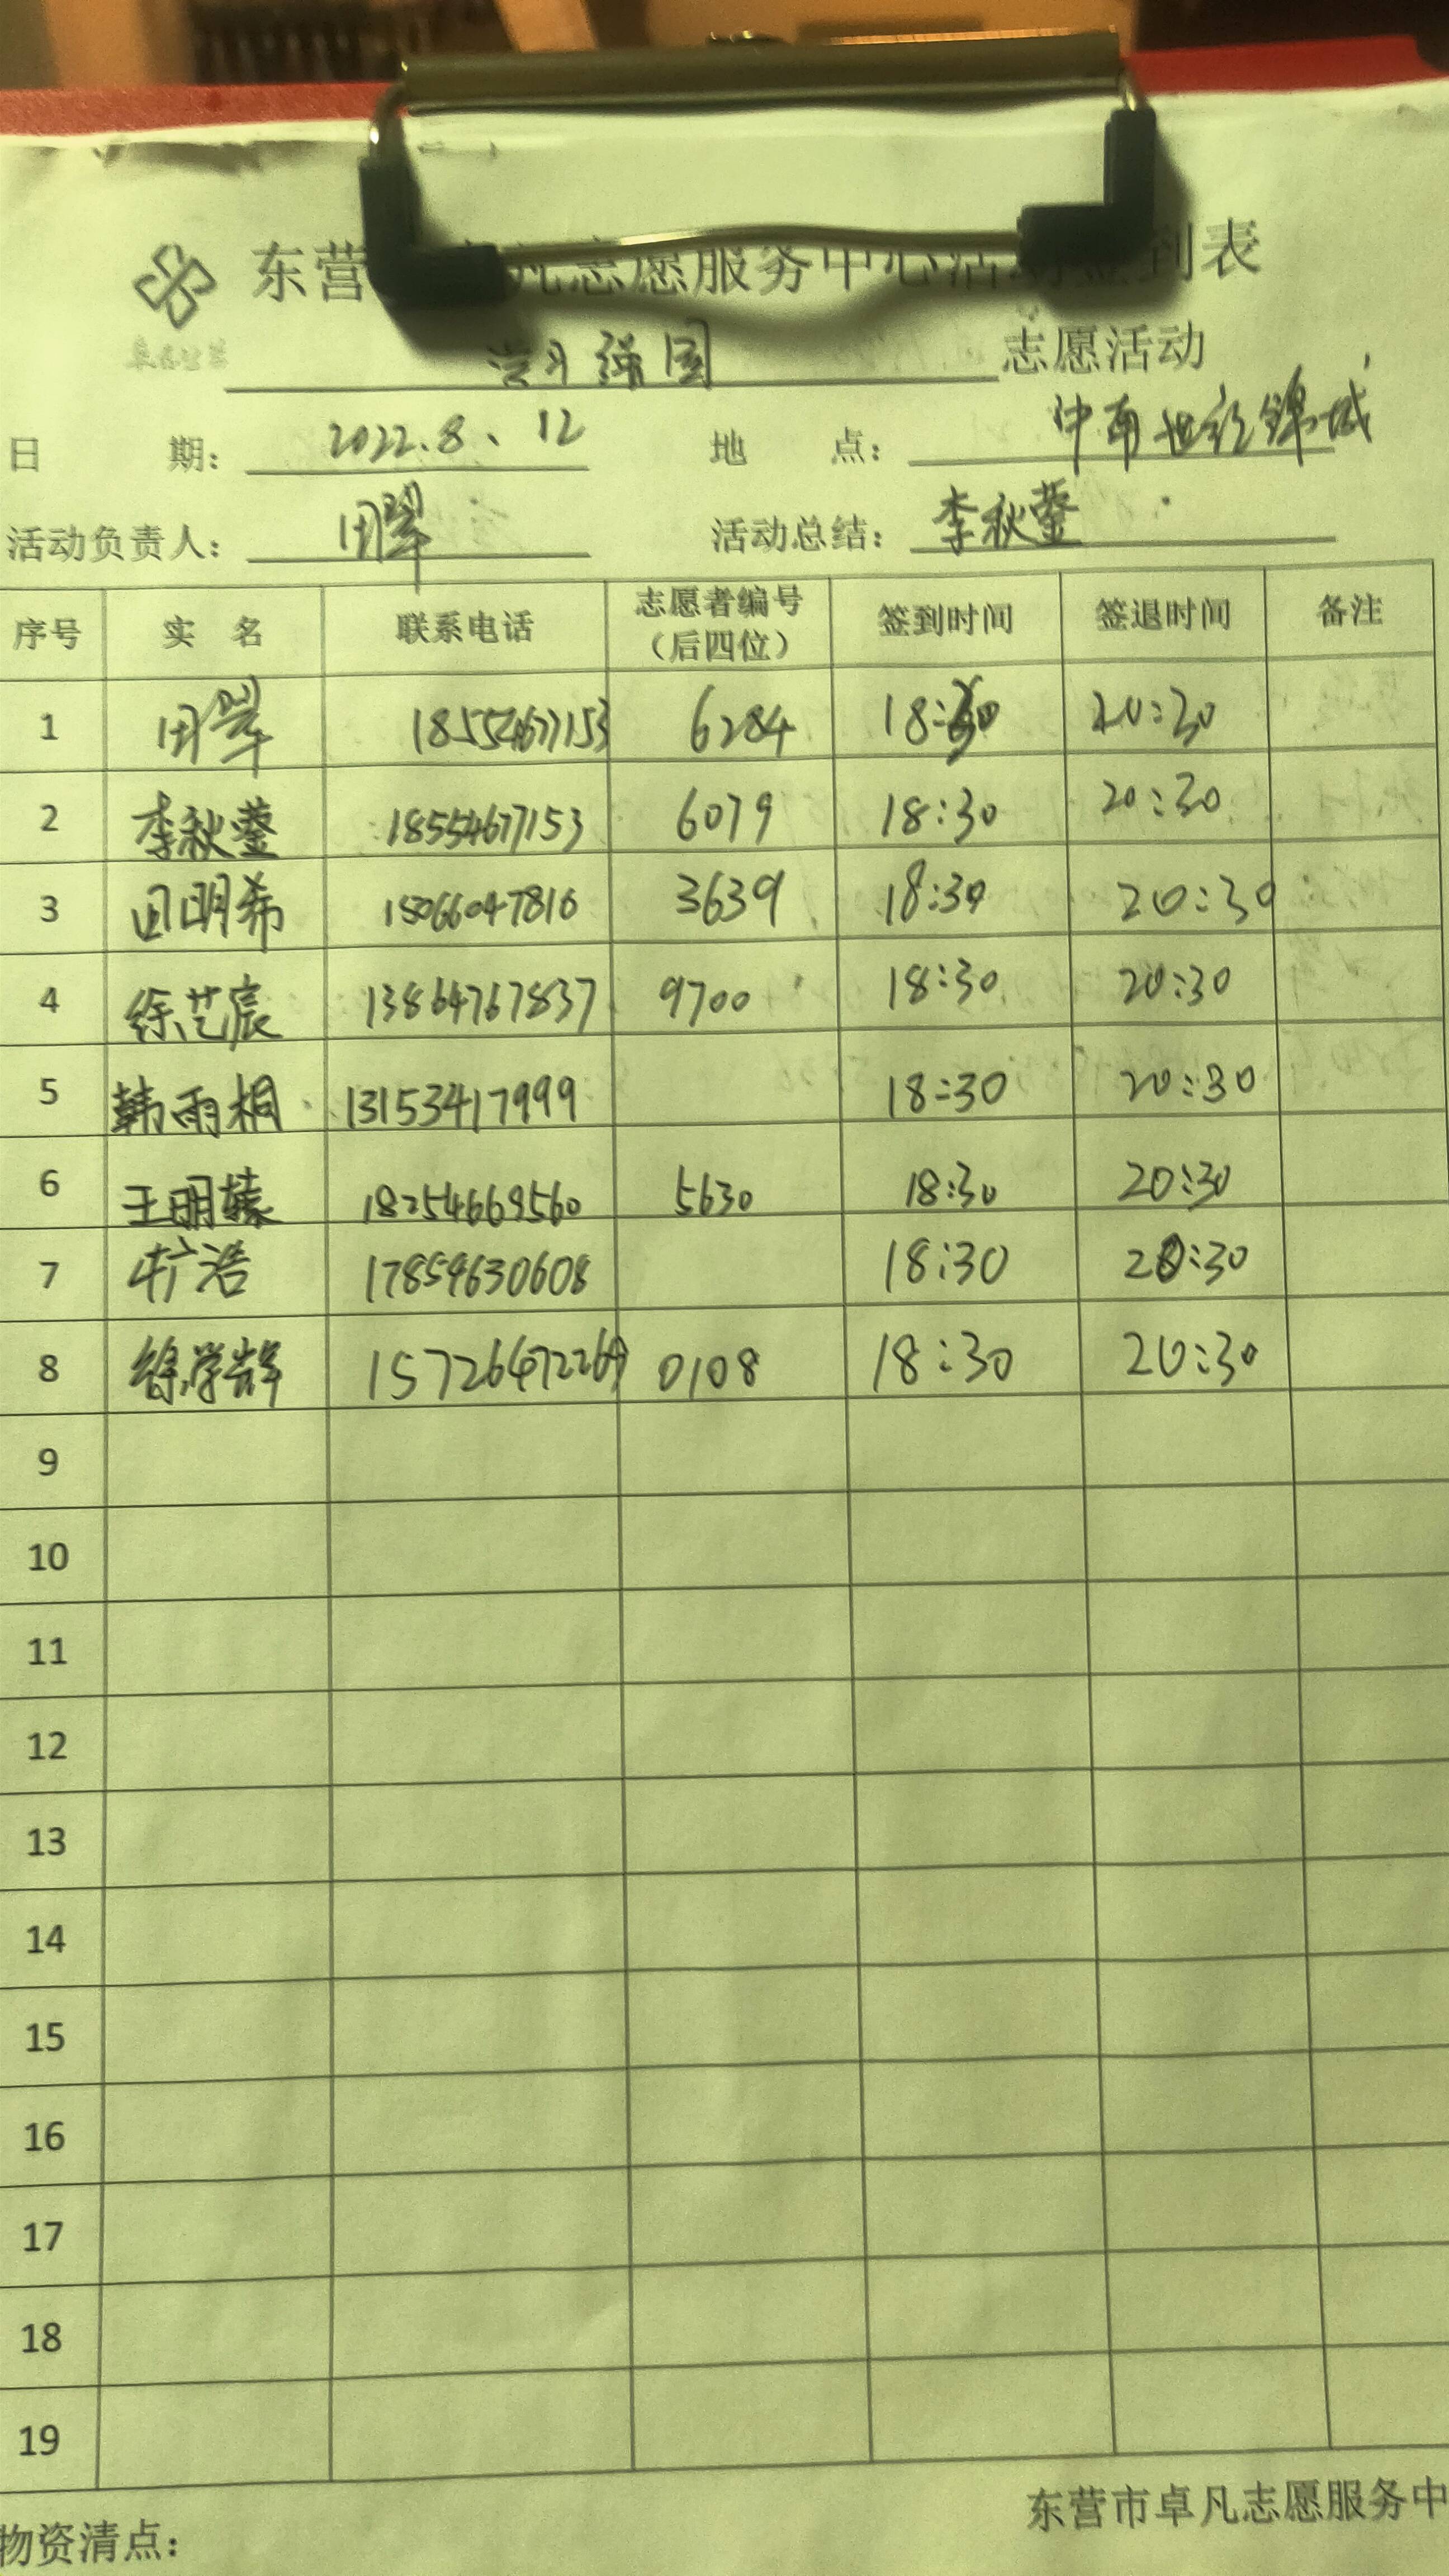 东营 凡志愿服务中心活动签到表
学习强国 志愿活动
日 期: 2022.8、12 地 点: 中南世纪锦城
活动负责人: 田翠 活动总结: 李秋蓥
序号 实 名 联系电话 志愿者编号(后四位) 签到时间 签退时间 备注
1 田翠 18554677153 6284 18:30 20:30
2 李秋蓥 18554677153 6079 18:30 20:30
3 田明希 15066047816 3639 18:30 20:30
4 徐艺宸 13864767837 9700 18:30 20:30
5 韩雨桐 13153417999 18:30 20:30
6 王明 18254669560 5630 18:30 20:30
7 浩 17859630608 18:30 20:30
8 徐学辉 0108 18:30 20:30
9
10
11
12
13
14
15
16
17
18
19
东营市卓凡志愿服务中
物资清点: